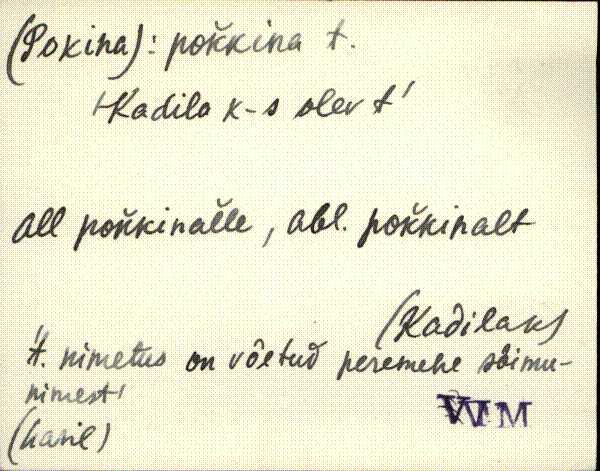 (Pokina): pok̆kina t.
Kadila k-s olev t'
All pok̆kinal̆le, abl. pok̆kinalt
(Kadilaks)
't. nimetus on võetud peremehe sõimu-
nimest'
VMM